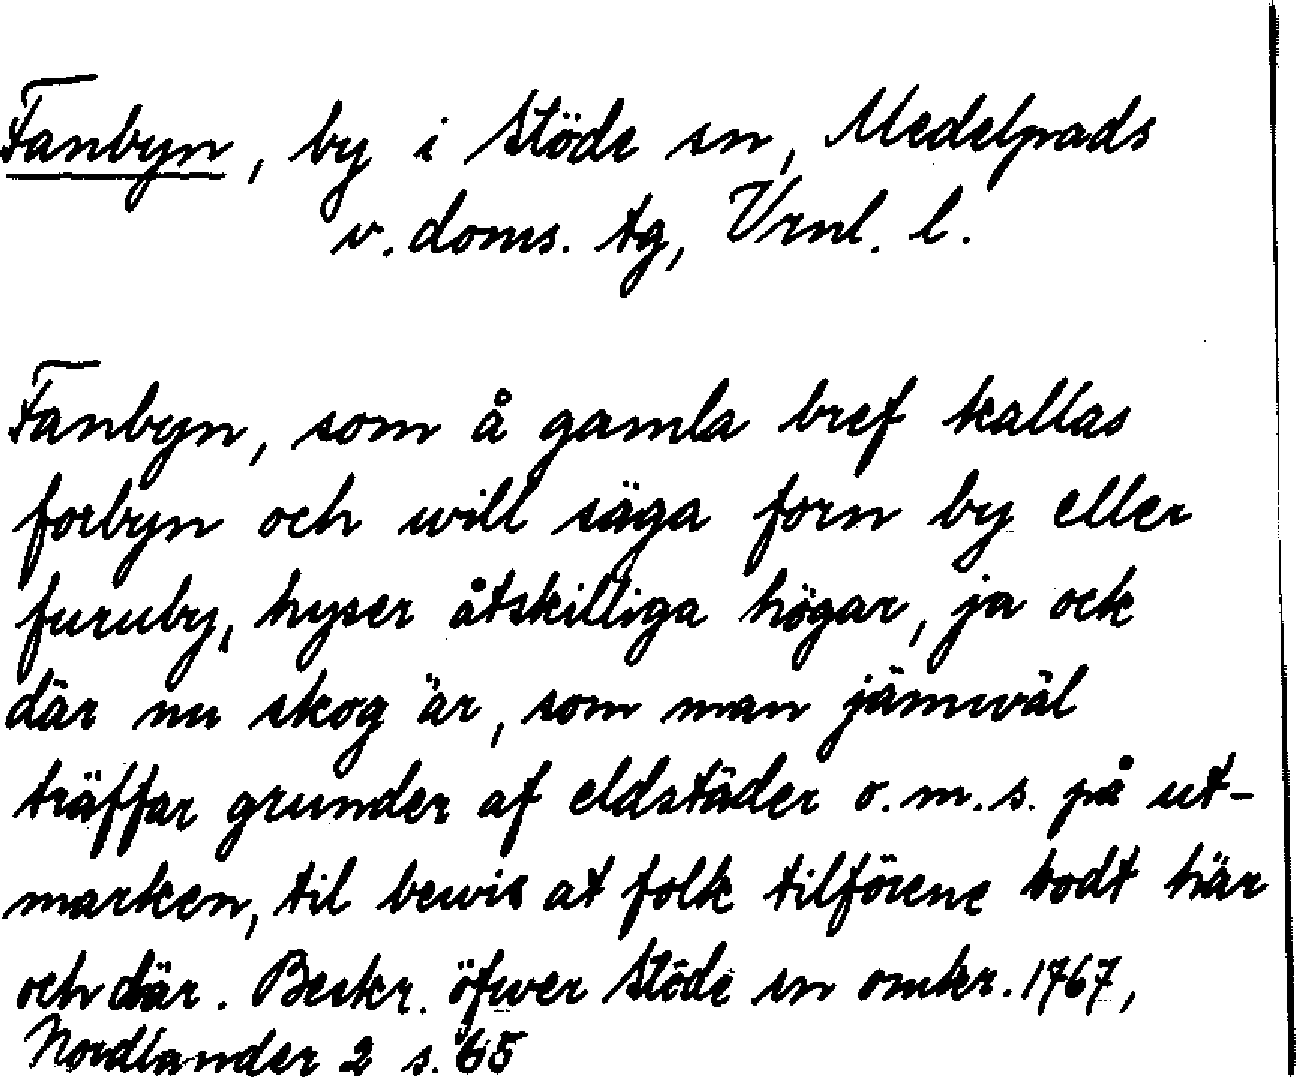 Fanbyn, by i Stöde sn, Medelpads
v. doms. tg, Vrnl. l.
Fanbyn, som å gamla bref kallas
forbyn och will säga forn by eller
furuby, hyser åtskilliga högar, ja ock
där nu skog är, som man jämwäl
träffar grunder af eldstäder o.m.s. på ut-
marken, til bewis at folk tilförene bodt här
och där. Beskr. öfwer Stöde sn omkr. 1767,
Nordlander 2 s. 65